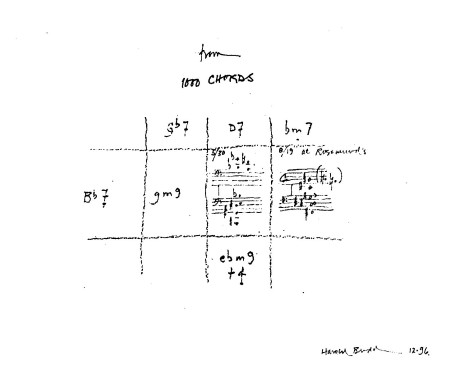 from
1000 CHORDS
gb7 D7 bm7
5/30 8/19 at Rosamund's
Bb7 gm9
ebm9
+4
Harold Budd 12-96